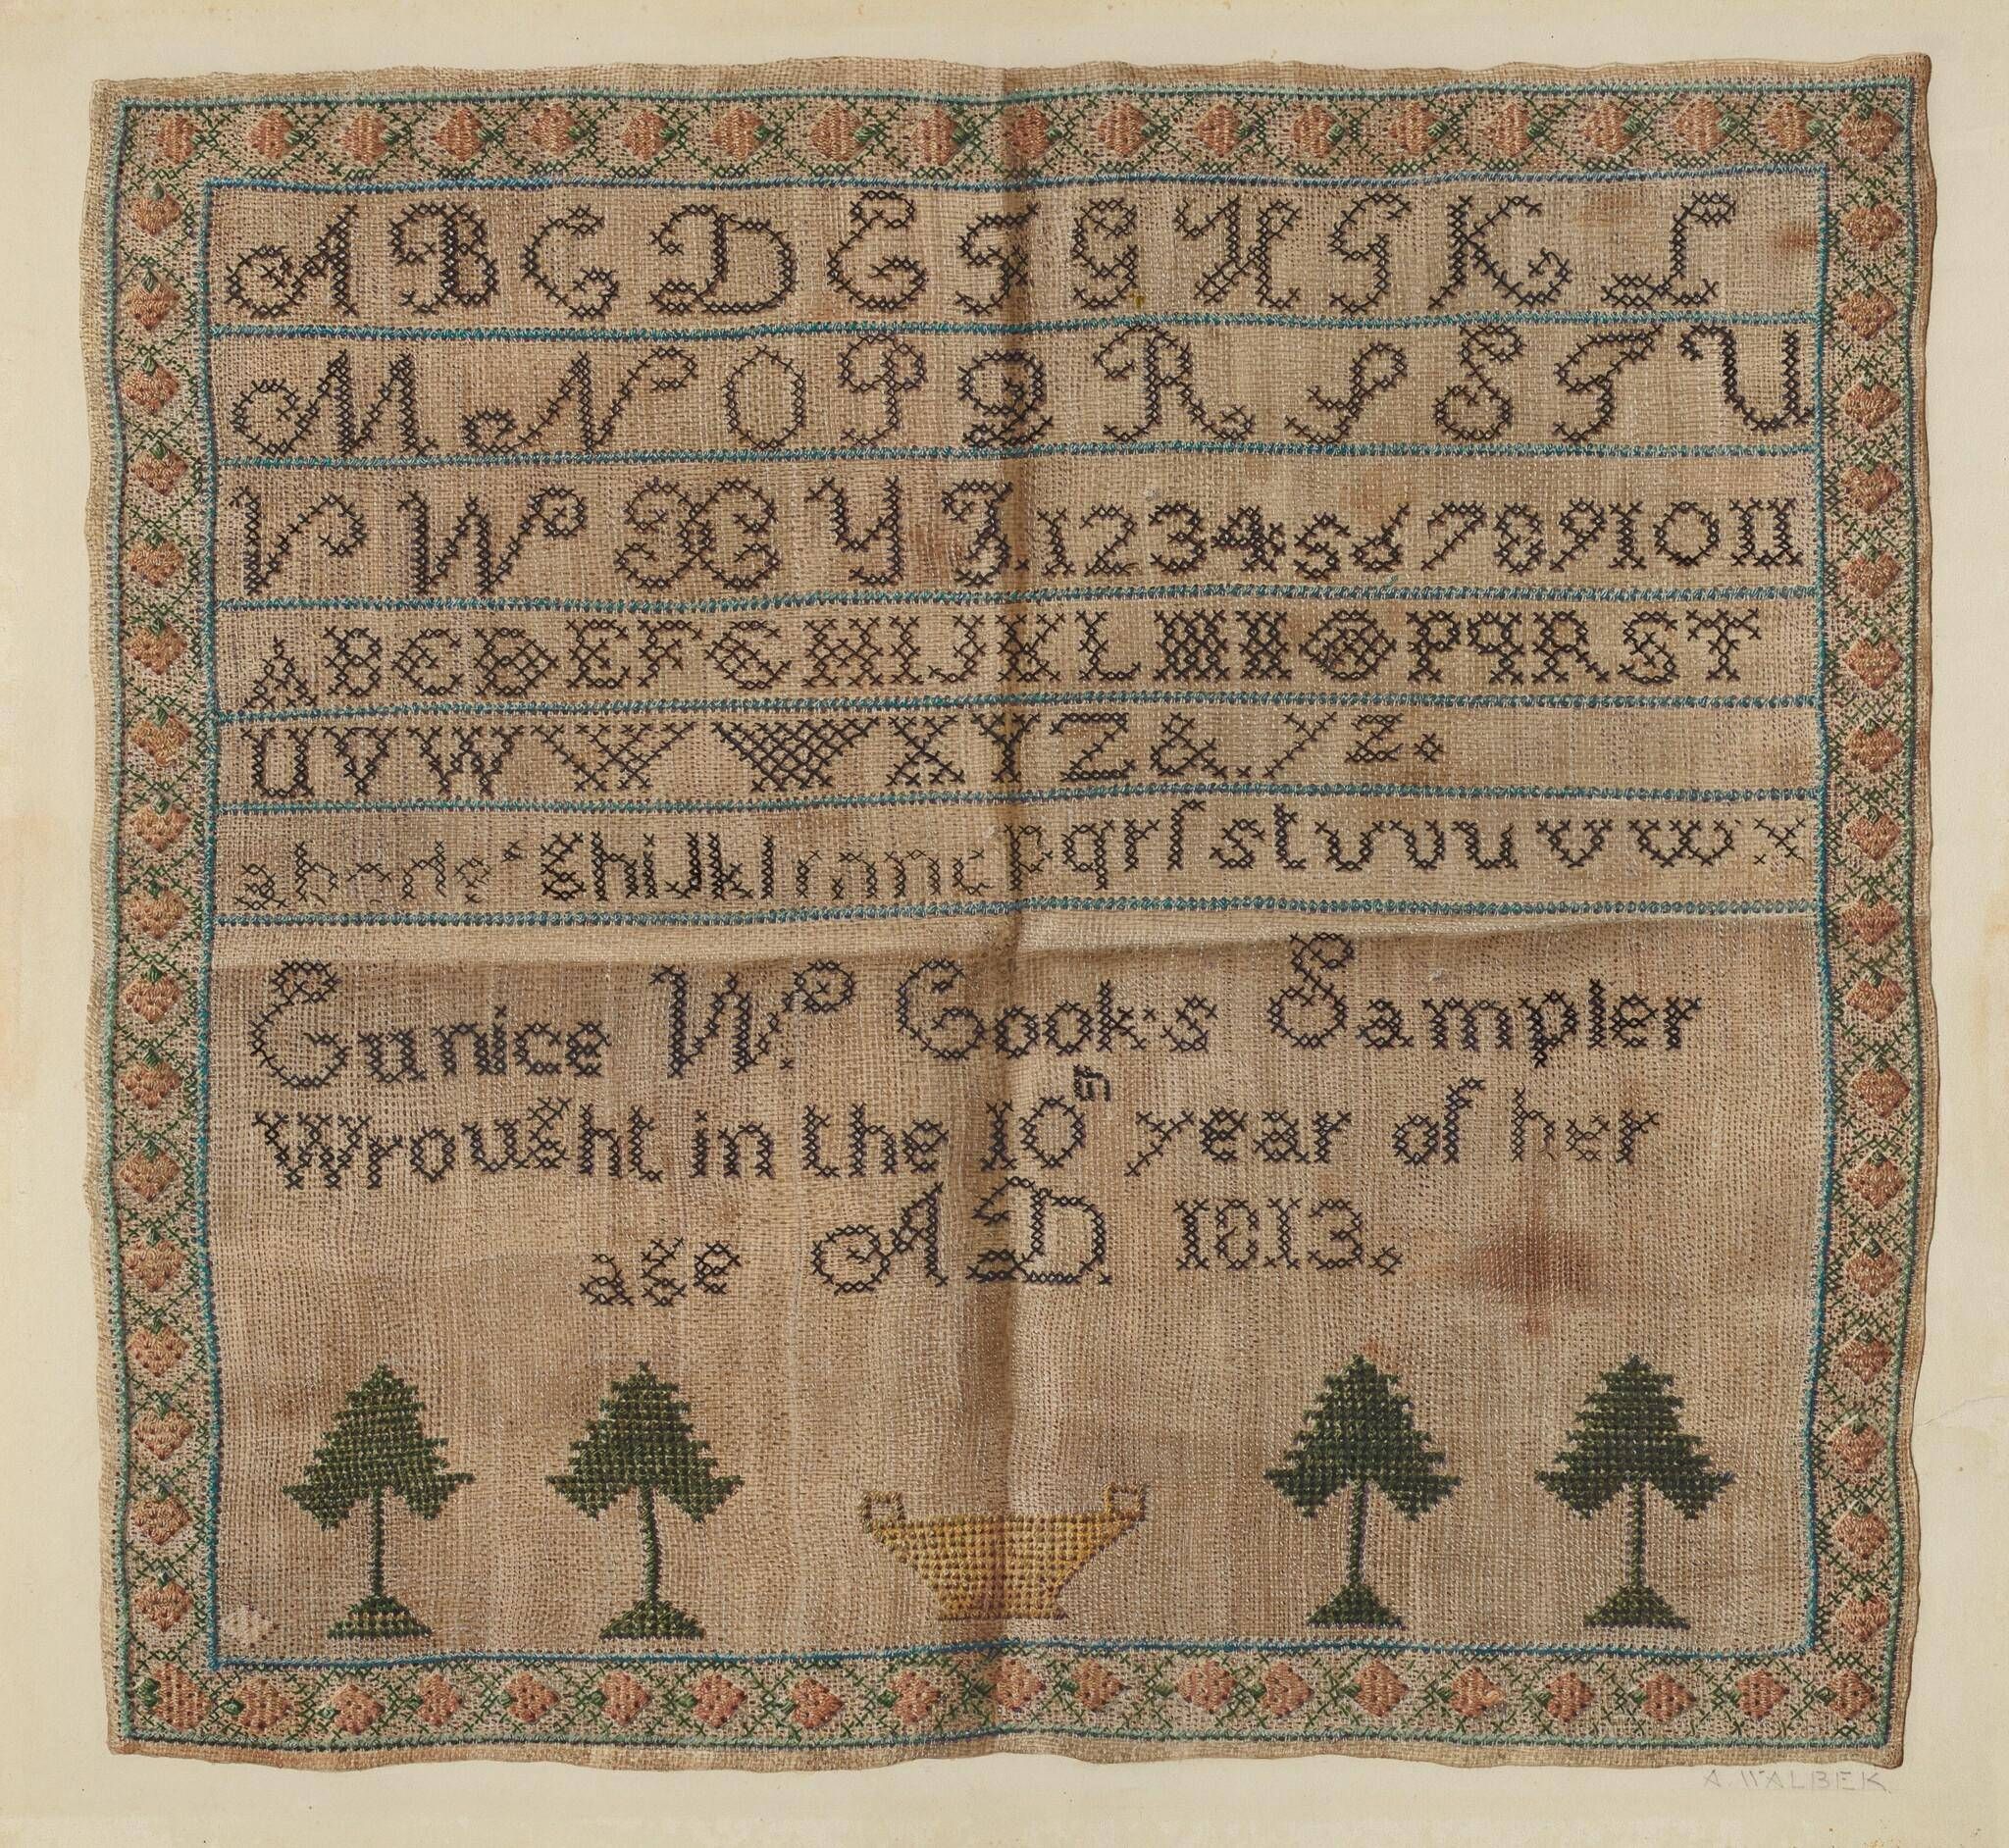 A B C D E F G H I K L
M N O P Q R ſ S T U
V W X Y Z. 1 2 3 4 5 6 7 8 9 10 11
A B C D E F G H I J K L M N O P Q R S T
U V W X Y Z &
a b c d e f g h i j k l m n o p q r ſ s t u v w x
Eunice W. Cook's Sampler
Wrought in the 10 year of her
age A D. 1813.
A. WALBEK